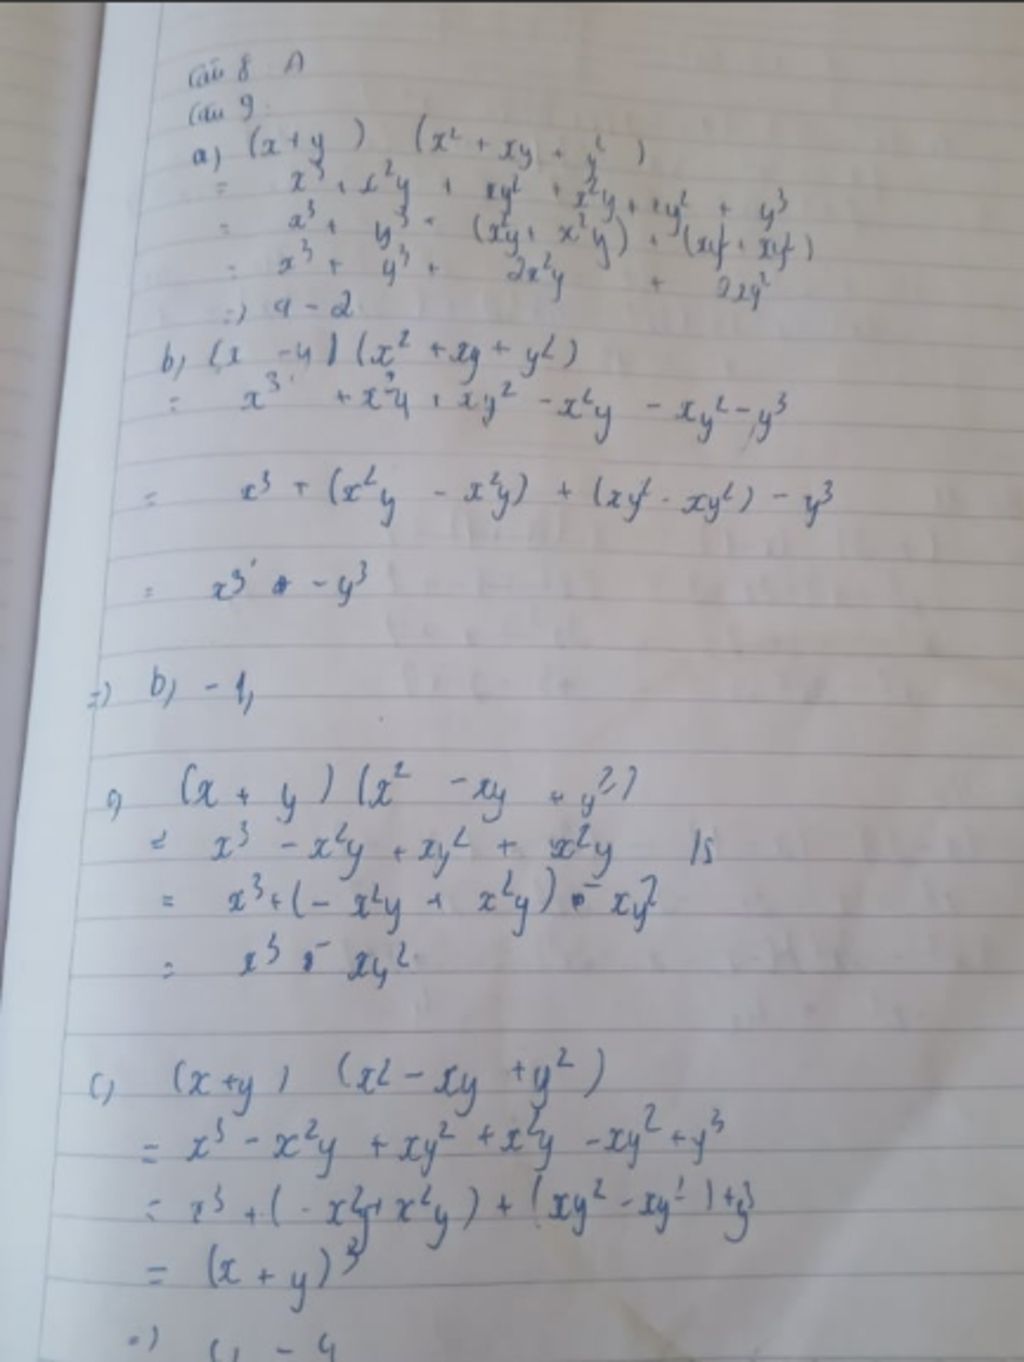 Câu 8 A
Câu 9:
a) (x + y) (x² + xy + y²)
= x³ + x²y + xy² + x²y + xy² + y³
= x³ + y³ + (x²y + x²y) + (xy² + xy²)
= x³ + y³ + 2x²y + 2xy²
=) a - 2
b) (x - y) (x² + xy + y²)
= x³ + x²y + xy² - x²y - xy² - y³
= x³ + (x²y - x²y) + (xy² - xy²) - y³
= x³ - y³
=) b) - 1,
(x + y) (x² - xy + y²)
= x³ - x²y + xy² + x²y
= x³ + (- x²y + x²y) - xy²
= x³ - xy²
c) (x + y) (x² - xy + y²)
= x³ - x²y + xy² + x²y - xy² + y³
= x³ + (- x²y + x²y) + (xy² - xy²) + y³
= (x + y)³
=) - 4